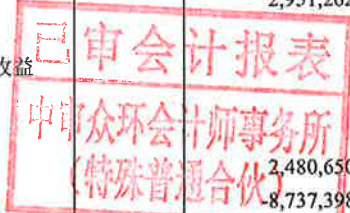 2,951,202
已审会计报表
收益
中审众环会计师事务所
(特殊普通合伙)
2,480,650
-8,737,398